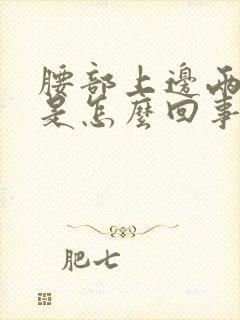 腰部上邊兩
是怎麼回事
肥七